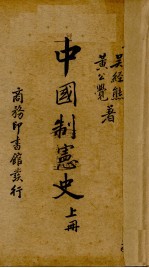 吳經熊
黃公覺 著
中國制憲史 上冊
商務印書館發行